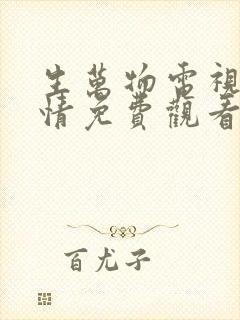 生萬物電視
情免費觀看
百尤子